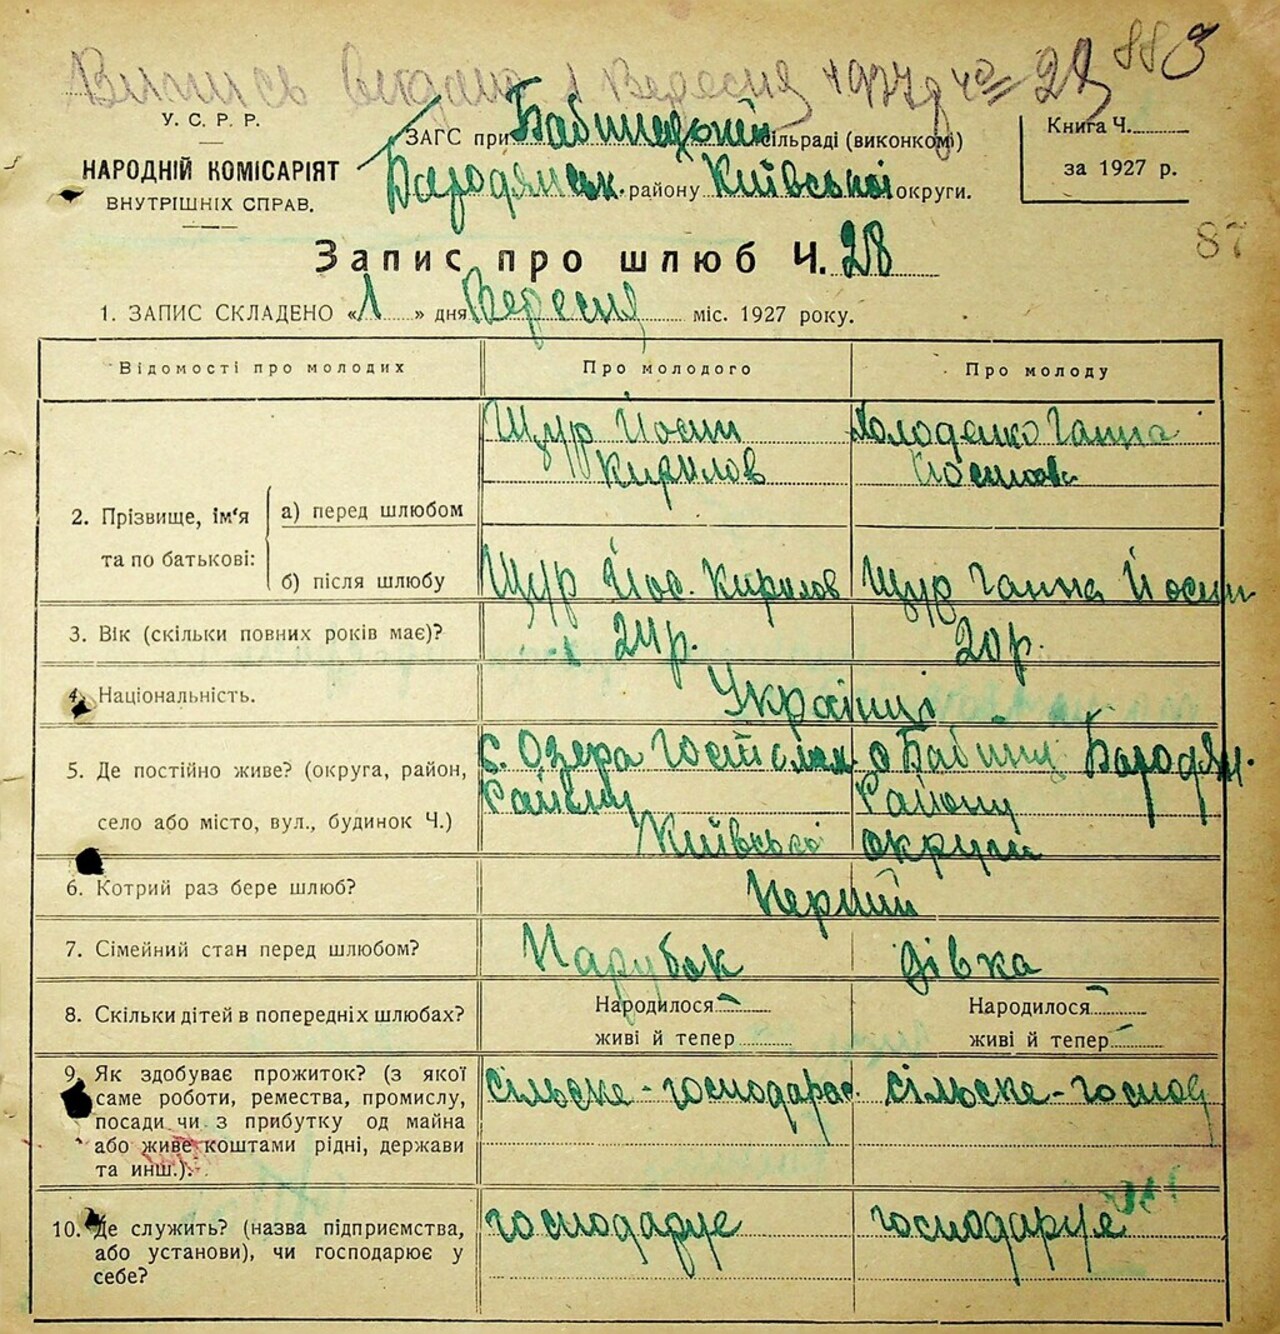 Випись видано 1 Вересня 1927 р 28
88 3
У. С. Р. Р.
НАРОДНІЙ КОМІСАРІЯТ
ВНУТРІШНІХ СПРАВ.
ЗАГС при Бабинецькій сільраді (виконком)
Бародянськ. району Київської округи.
Книга Ч.
за 1927 р.
87
Запис про шлюб Ч. 28
1. ЗАПИС СКЛАДЕНО «1» дня Вересня міс. 1927 року.
Відомості про молодих Про молодого Про молоду
2. Прізвище, ім'я та по батькові:
а) перед шлюбом
Щур Йосип
Кирилов
Холоденко Ганна
Йосипова
б) після шлюбу
Щур Йос. Кирилов
Щур Ганна Йосип
3. Вік (скільки повних років має)? 24 р. 20 р.
4. Національність. Українці
5. Де постійно живе? (округа, район,
село або місто, вул., будинок Ч.)
с. Озера Гостомл.
Району
с Бабинці Бародян.
Району
Київської округи
6. Котрий раз бере шлюб? Перший
7. Сімейний стан перед шлюбом? Парубок дівка
8. Скільки дітей в попередніх шлюбах?
Народилося –
живі й тепер
Народилося –
живі й тепер –
9. Як здобуває прожиток? (з якої
саме роботи, ремества, промислу,
посади чи з прибутку од майна
або живе коштами рідні, держави
та инш.).
сільське-господарс.
сільське-господ
10. Де служить? (назва підприємства,
або установи), чи господарює у
себе?
господарує
господарує